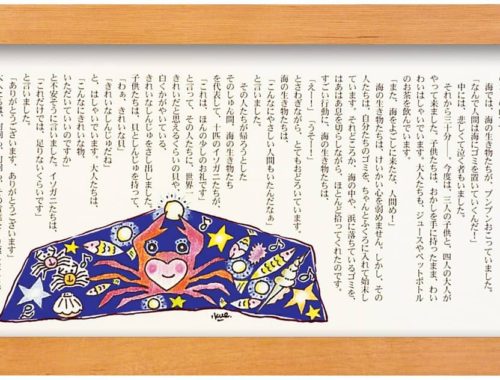 海では、海の生き物たちが、プンプンおこっていました。
「なんで人間は海にゴミを置いていくんだー」
中には、悲しくて泣く者もいました。
それから三十分後、今度は、三人の子供と、四人の大人が
やって来ました。子供たちは、おかしを手に持ったまま、わい
わいはしゃいでいます。大人たちも、ジュースやペットボトル
のお茶を飲んでいます。
「また、海をよごしに来たな、人間め！」
海の生き物たちは、けいかい心を弱めません。しかし、その
人たちは、自分たちのゴミを、ちゃんとふくろに入れて始末し
ています。それどころか、海の中や、浜に落ちているゴミを、
はあはあ息を切らしながら、ほとんど拾ってくれたのです。
すごい行動に、海の生き物たちは、
「えー！」「うそー！」
とさわぎながら、とてもおどろいています。
海の生き物たちは、
「こんなにやさしい人間もいたんだなぁ」
と言いました。
その人たちが帰ろうとした
そのしゅん間、海の生き物たち
を代表して、十匹のイソガニたちが、
「これは、ほんの少しのお礼です」
と言って、その人たちに、世界一
きれいだと思えるくらいの貝や、
白くかがやいている、
きれいなしんじゅをさし出しました。
子供たちは、貝としんじゅを持って、
「わぁ、きれいな貝」
「きれいなしんじゅだね」
と、はしゃいでいます。大人たちは、
「こんなにきれいな物、
いただいていいのですか」
と不安そうに言いました。イソガニたちは、
「これだけでは、足りないくらいです」
と言いました。
「ありがとうございます。ありがとうございます」